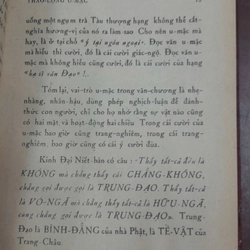 THAO-LUONG U-MAC
uống một ngụm trà Tàu thượng hạng không thể cắt-
nghĩa hương-vị của nó ra làm sao. Cho nên u-mặc mà
hay, là ở tại chỗ «ý tại ngôn ngoại». Đọc văn u-
mặc mà hiểu được, đó là cái cười giác-ngộ. Đọc văn u-
mặc mà không hiểu cũng cười, đó là cái cười của hạng
«hạ sĩ văn Đạo»!...
Tóm lại, vai-trò u-mặc trong văn-chương là nhẹ-
nhàng, nhân-hậu, dùng phép nghịch-luận để đánh
thức con người, chỉ cho họ nhớ rằng bề tự vật nào cũng
có hai mặt, và hoạt-động hai chiều. Trong cái cười của
u-mặc bao giờ cũng trang-nghiêm, trong cái trang-
nghiêm bao giờ cũng có cái cười.
Kinh Đại Niết-bàn có câu: «Thấy tất-cả đều là
KHÔNG mà chẳng thấy cái CHẲNG-KHÔNG,
chẳng gọi được gọi là TRUNG-ĐẠO. Thấy tất-cả
là VÔ-NGÃ mà chẳng thấy tất-cả là HỮU-NGÃ,
cũng chẳng gọi được là TRUNG-ĐẠO». Trung-
Đạo là BÌNH-ĐẲNG của nhà Phật, là TỀ-VẬT của
Trang-Châu